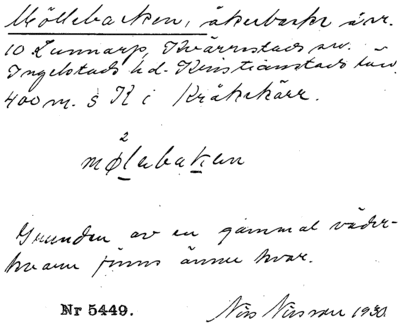 Möllebacken, åkerbacke övr.
10 Lunnarp, Tvärrestads sn.
Ingelstads hd. Kristianstads län.
400 m. s K i Kräkekärr.
2
mølabakan
Grunden av en gammal väder-
kvarn finns ännu kvar.
Nr 5449. Nils Nilsson 1930